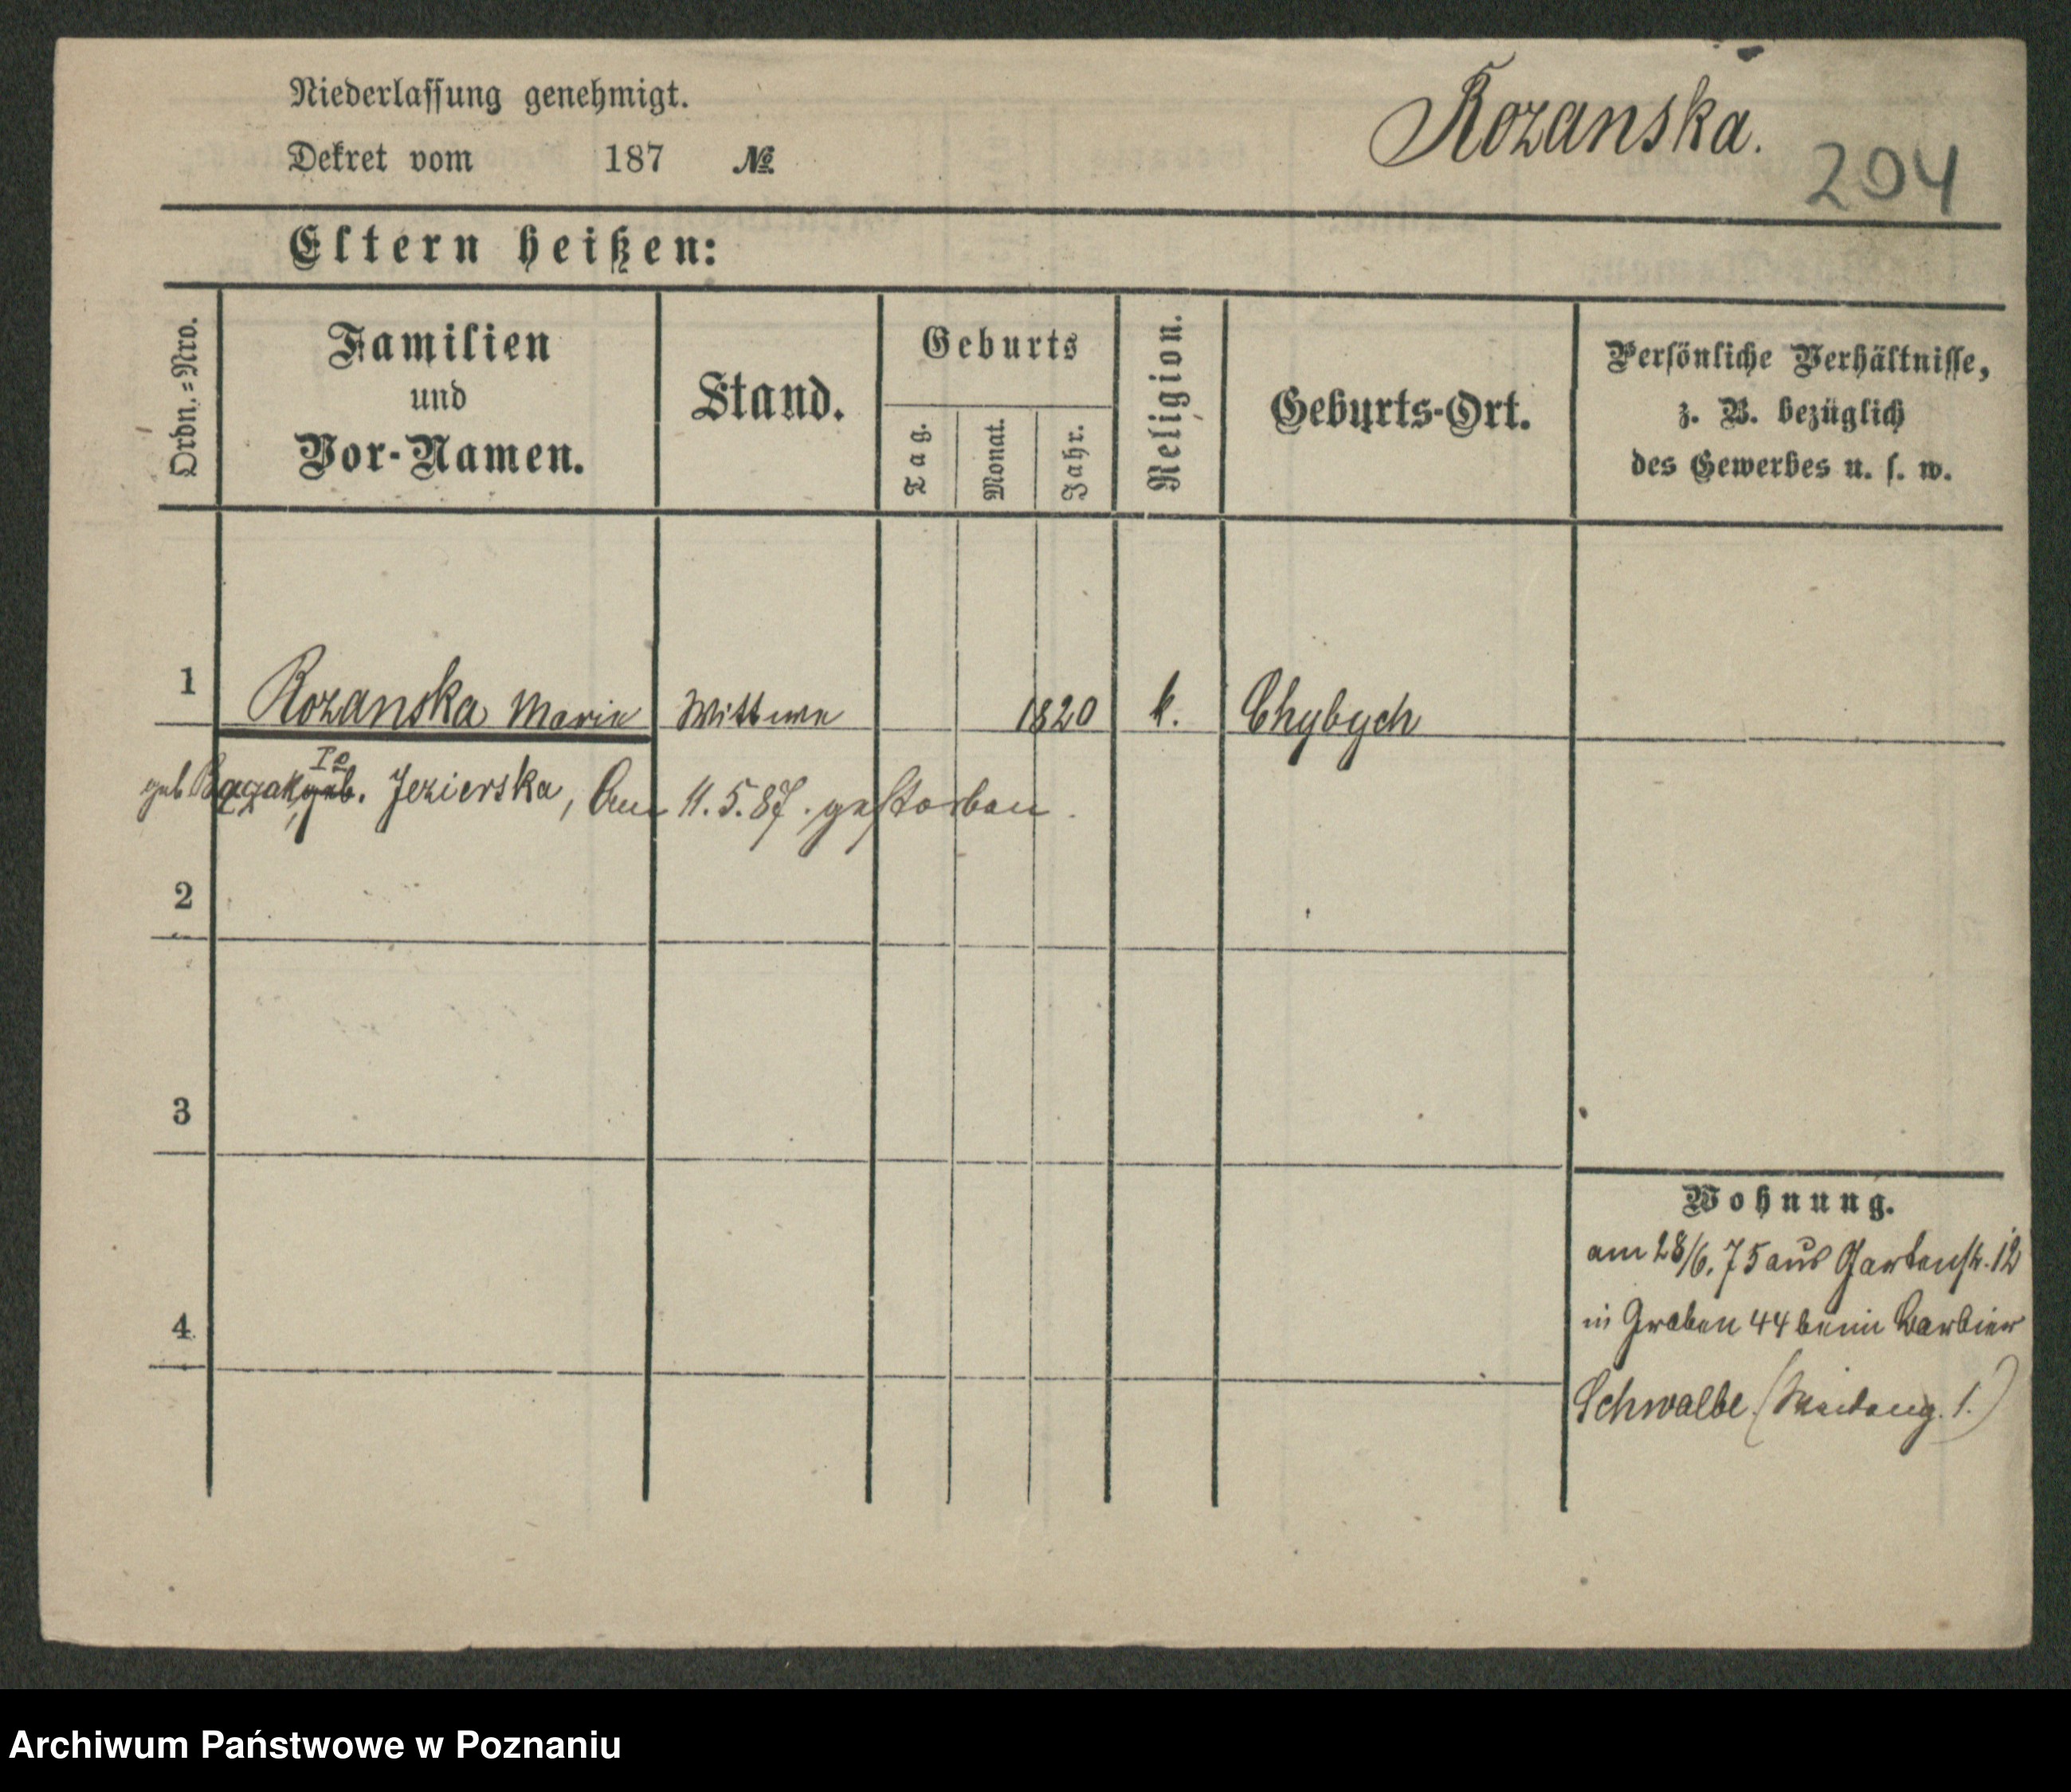 Niederlassung genehmigt.
Dekret vom 187 №
Rozanska.
204
Eltern heißen:
Ordn.=Nro.
Familien
und
Vor-Namen.
Stand.
Geburts
Tag.
Monat.
Jahr.
Religion.
Geburts-Ort.
Persönliche Verhältnisse,
z. B. bezüglich
des Gewerbes u. s. w.
1 Rozanska Marie Wittwe 1820 k. Chybych
geb. Jezierska, Am 11.5.87. gestorben.
2
3
4
Wohnung.
am 28/6.75 aus Gartenstr. 12
in Graben 44 beim Barbier
Schwalbe
Archiwum Państwowe w Poznaniu